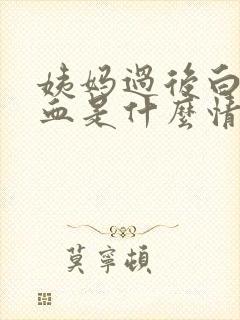 姨妈過後白
血是什麼情
莫寧頓